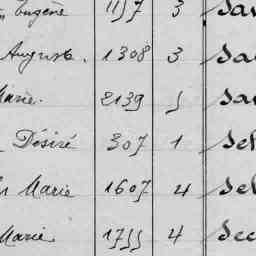 Eugène 1157 3 Sav
Auguste. 1308 3 Sa
Marie. 2139 5 Sav
Désiré 307 1 Sel
Marie 1607 4 Sel
Marie 1755 4 Sec